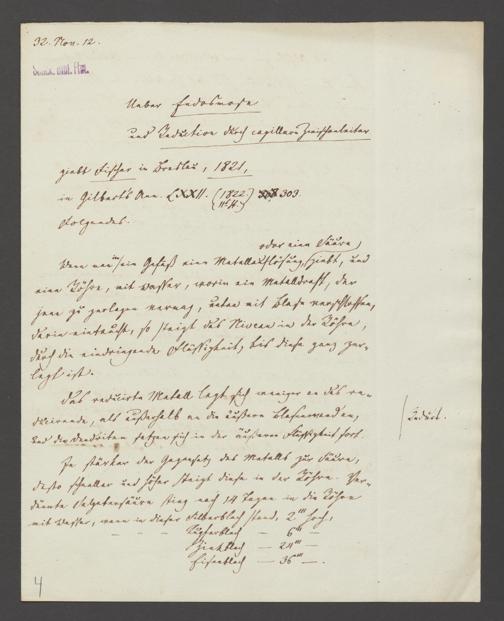 32. Nov. 12.
Ueber Endosmose
und Reduction durch capillare Zwischenleiter
giebt Fischer in Breslau, 1821,
in Gilbert's Ann. LXXII. (1822.) 303.
Folgendes.
oder eine Säure,
Wenn man in ein Gefäß eine Metallauflösung, gießt, und
eine Röhre, mit Wasser, worin ein Metalldraht, der
jene zu zerlegen vermag, unten mit Blase verschlossen,
darin eintaucht, so steigt das Niveau in der Röhre,
durch die eindringende Flüssigkeit, bis diese ganz zer-
legt ist.
Das reducirte Metall legt sich weniger an das re-
ducirende, als außerhalb an die äußern Blasenwand an,
und die Dendriten setzen sich in der äußeren Flüssigkeit fort.
Reduct.
Je stärker der Gegensatz des Metalls zur Säure,
desto schneller und höher steigt diese in der Röhre. Ver-
dünnte Salpetersäure stieg nach 14 Tagen in die Röhre
mit Wasser, wenn in dieser Silberblech stand, 2''' hoch,
– – – Kupferblech — 6''' —
Zinkblech — 24''' —
Eisenblech — 36''' — .
4